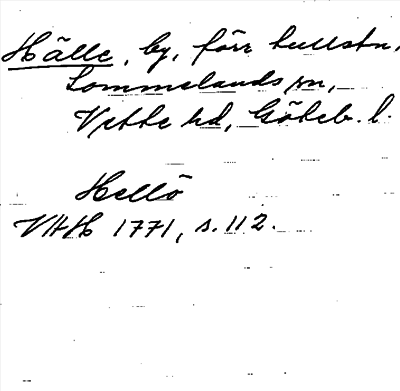 Hälle, by, förr tullstn,
Lommelands sn,
Vette hd, Göteb. l.
Hellö
VHH 1771, s. 112.